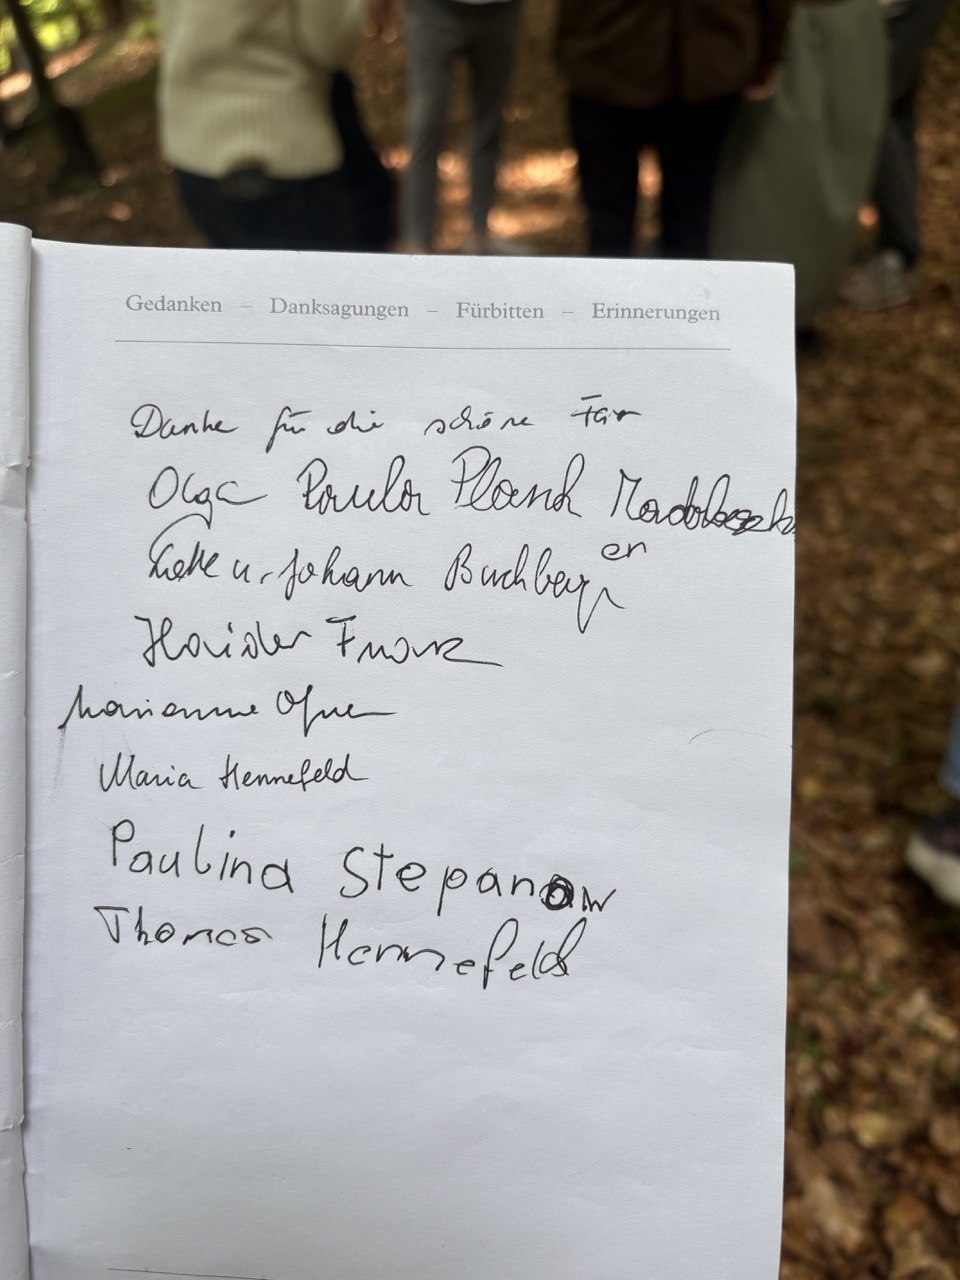 Gedanken – Danksagungen – Fürbitten – Erinnerungen
Danke für die schöne
Olga Paula Planck
u. Johann Buchberger
Haider Franz
Marianne
Maria Hennefeld
Paulina Stepanow
Thomas Hennefeld